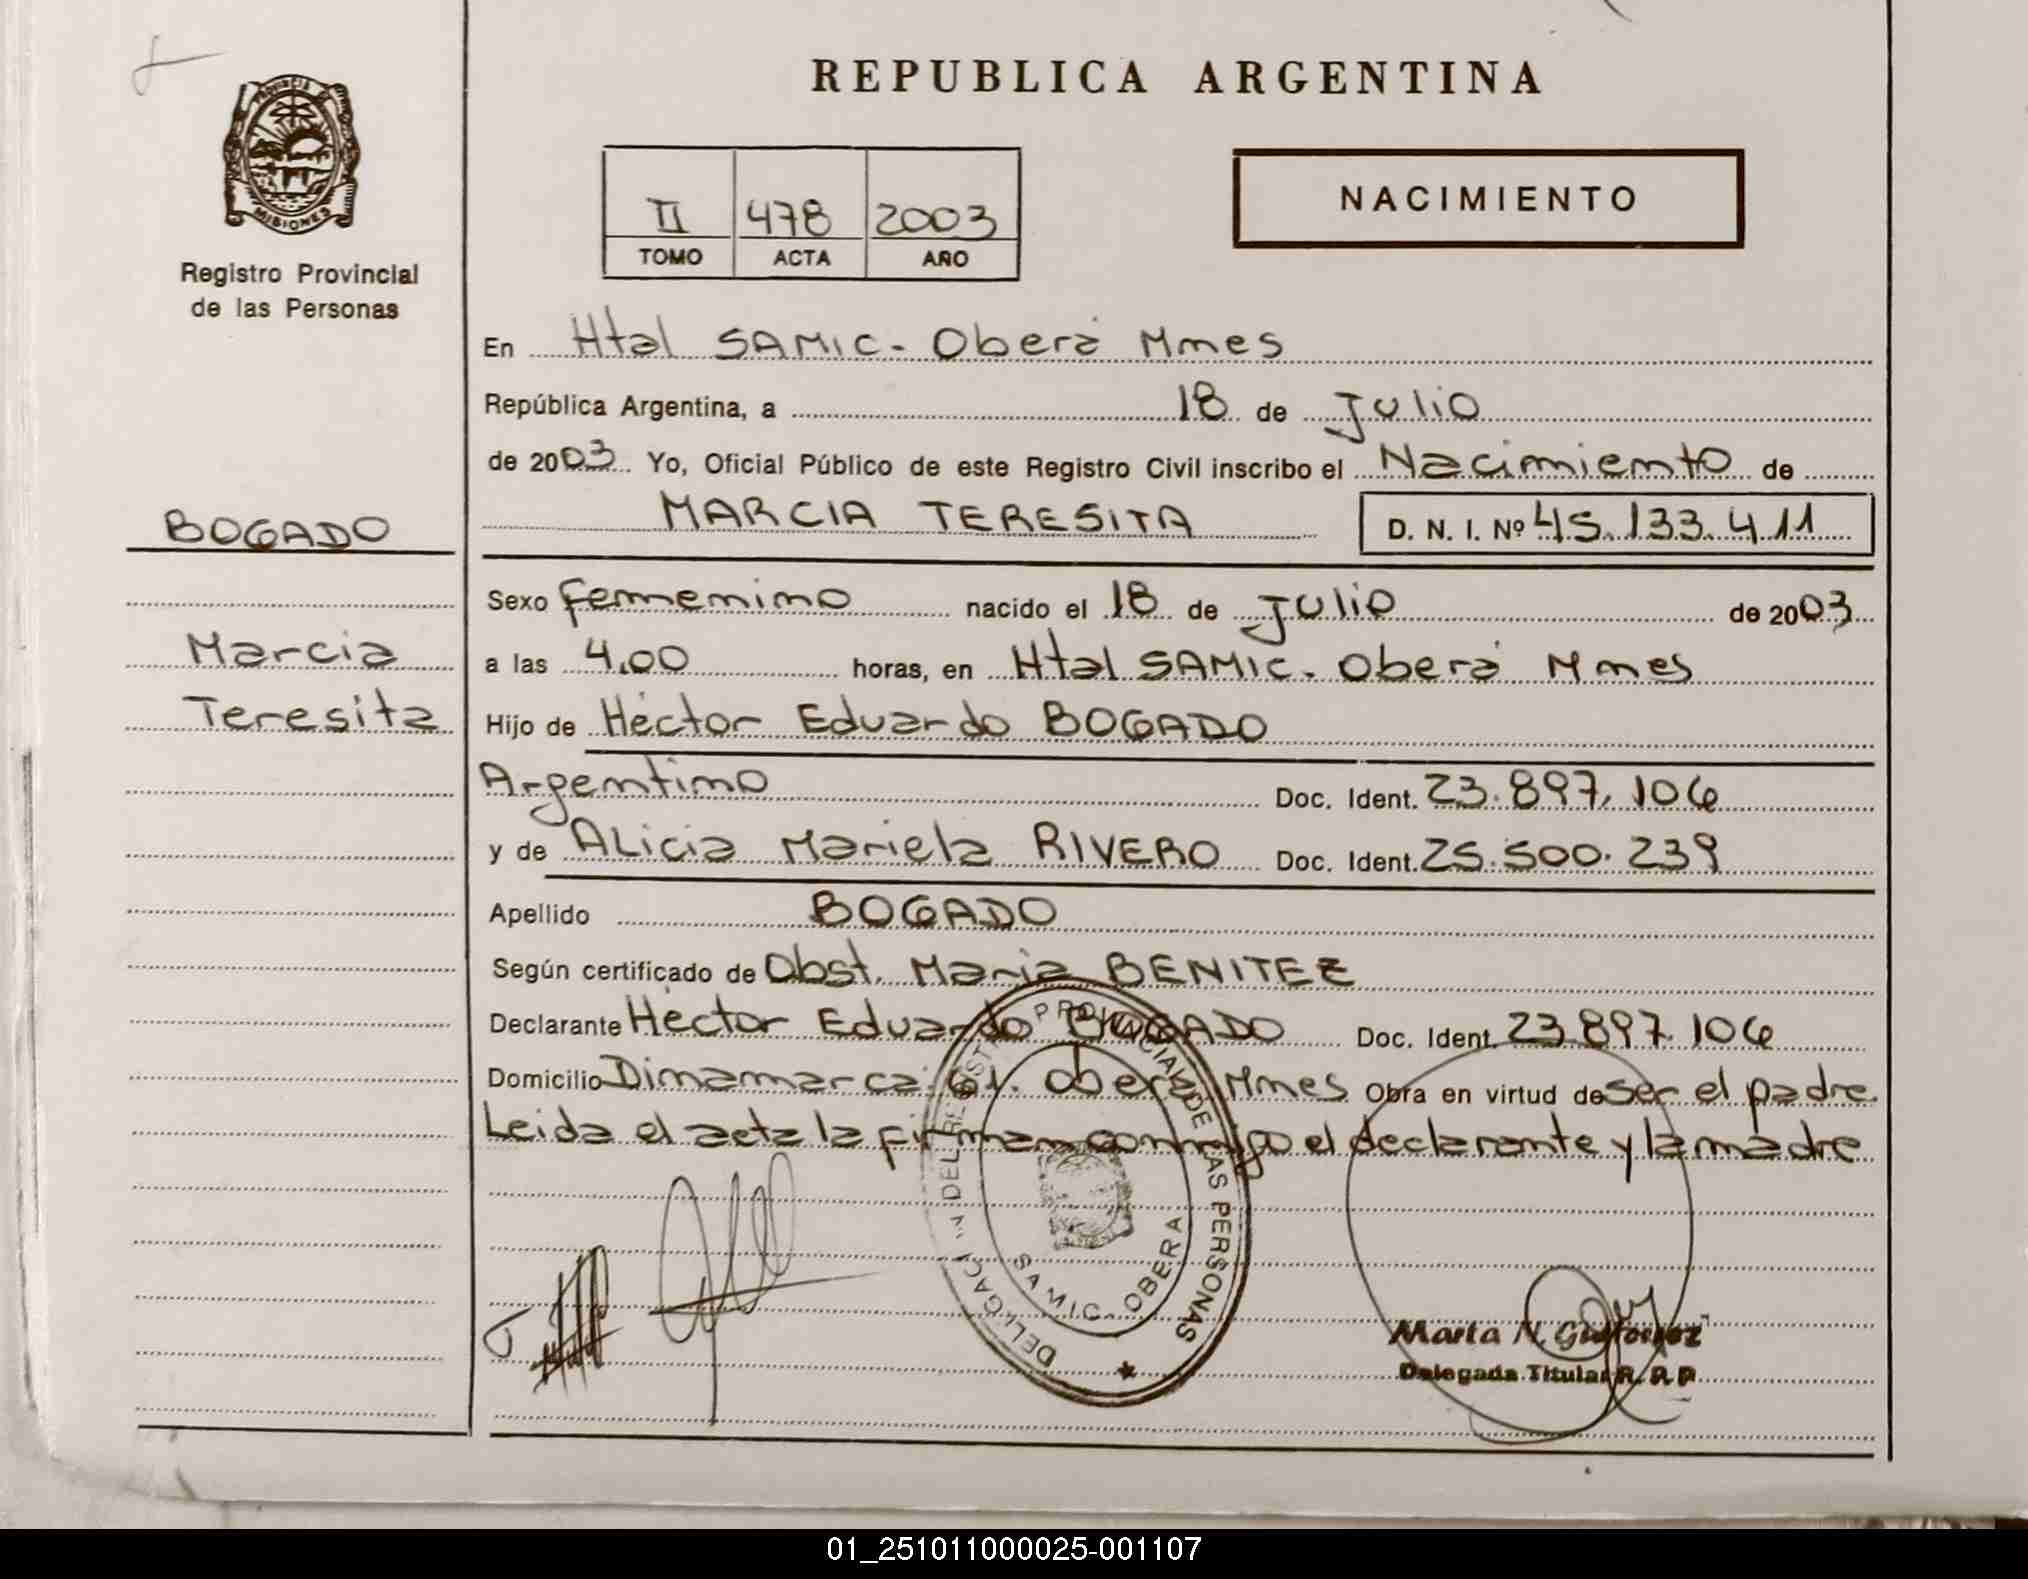 REPUBLICA ARGENTINA
PROVINCIA DE
MISIONES
Registro Provincial
de las Personas
II 478 2003
TOMO ACTA AÑO
NACIMIENTO
En Htal SAMIC - Oberá Mnes
República Argentina, a 18 de Julio
de 2003 Yo, Oficial Público de este Registro Civil inscribo el Nacimiento de
MARCIA TERESITA D. N. I. Nº 45.133.411
BOGADO
Marcia
Teresita
Sexo femenino nacido el 18 de Julio de 2003
a las 4.00 horas, en Htal SAMIC. Oberá Mnes
Hijo de Héctor Eduardo BOGADO
Argentino Doc. Ident. 23.897.106
y de ALicia Mariela RIVERO Doc. Ident. 25.500.239
Apellido BOGADO
Según certificado de Obst. Maria BENITEZ
Declarante Héctor Eduardo BOGADO Doc. Ident. 23.897.106
Domicilio Dinamarca 61. Oberá Mnes Obra en virtud de ser el padre.
Leida el acta la firman conmigo el declarante y la madre
PROVINCIAL DE LAS PERSONAS
SAMIC - OBERA
Marta N.
Delegada Titular R. P. P
01_251011000025-001107